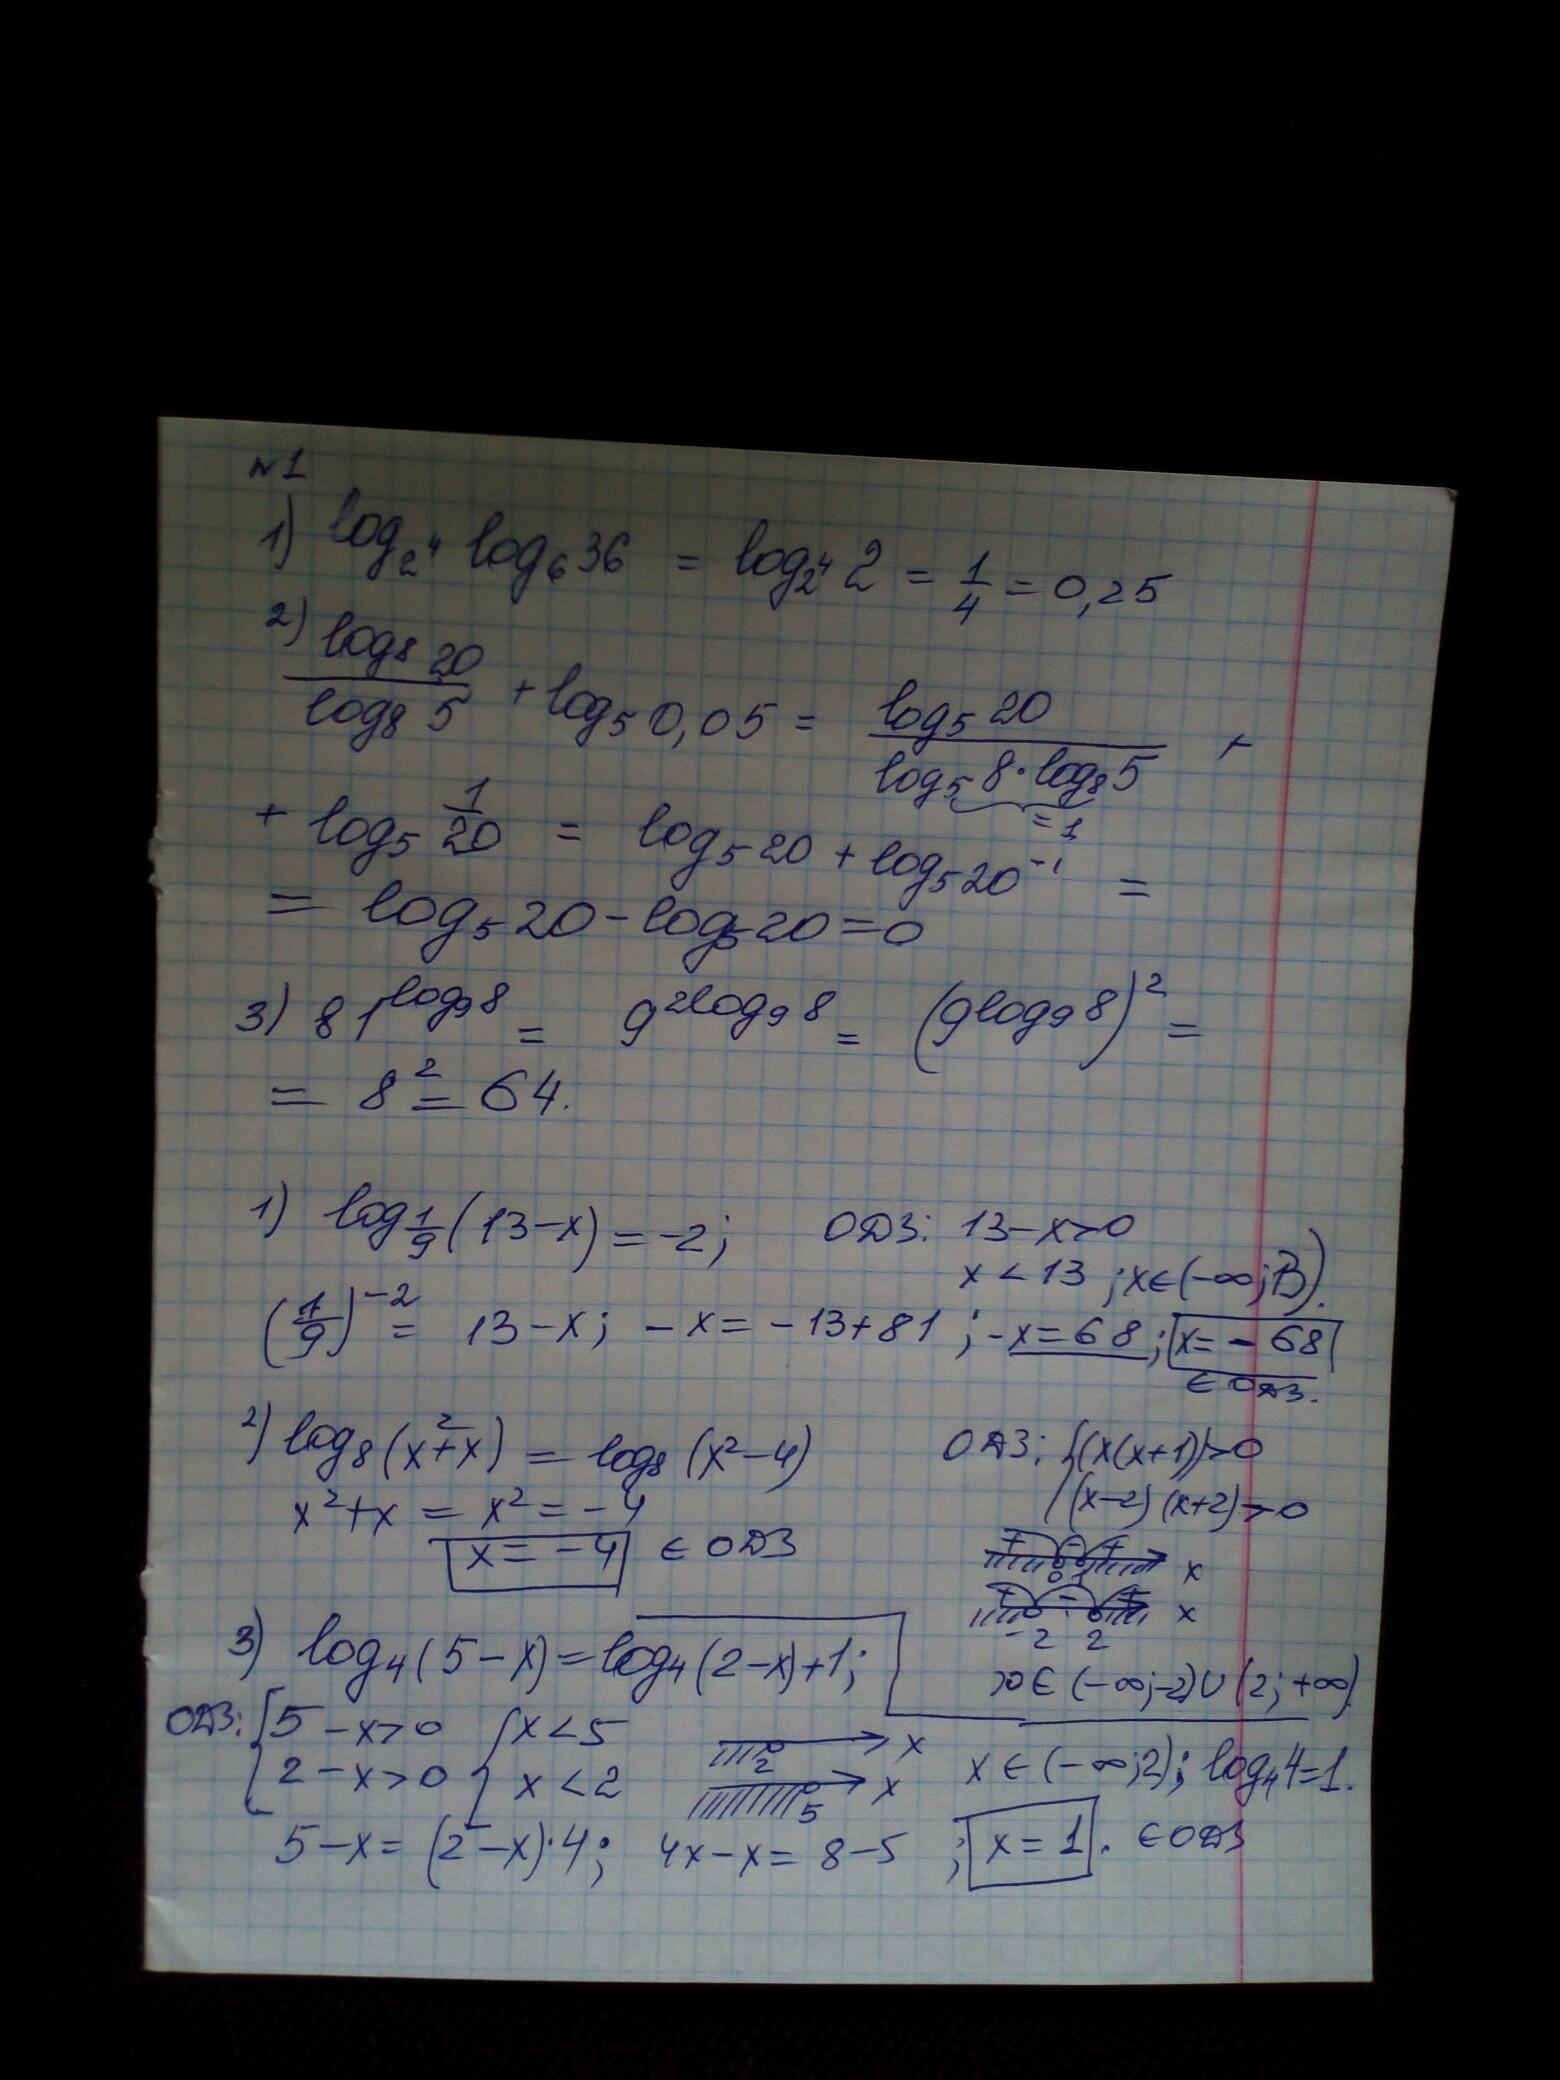 №1
1) log₂⁴ log₆36 = log₂⁴ 2 = 1/4 = 0,25
2) log₈ 20 / log₈ 5 + log₅ 0,05 = log₅ 20 / log₅ 8 · log₈ 5 +
= 1
+ log₅ 1/20 = log₅ 20 + log₅ 20⁻¹ =
= log₅ 20 - log₅ 20 = 0
3) 81^log₉8 = 9^2log₉8 = (9^log₉8)² =
= 8² = 64.
1) log 1/9 (13 - x) = -2; ОДЗ: 13 - x > 0
x < 13 ; x ∈ (-∞; 13).
(1/9)⁻² = 13 - x; - x = - 13 + 81 ; - x = 68 ; x = - 68
∈ ОДЗ.
2) log₈ (x² + x) = log₈ (x² - 4) ОДЗ: { (x(x+1)) > 0
x² + x = x² = - 4 (x-2) (x+2) > 0
x = - 4 ∈ ОДЗ
+ - + x
0 1
+ - + x
-2 2
3) log₄ (5 - x) = log₄ (2 - x) + 1;
x ∈ (-∞; -2) ∪ (2; +∞)
ОДЗ: { 5 - x > 0 { x < 5 x
2 - x > 0 x < 2 2 x
5
x ∈ (-∞; 2); log₄ 4 = 1.
5 - x = (2 - x) · 4; 4x - x = 8 - 5 ; x = 1 . ∈ ОДЗ